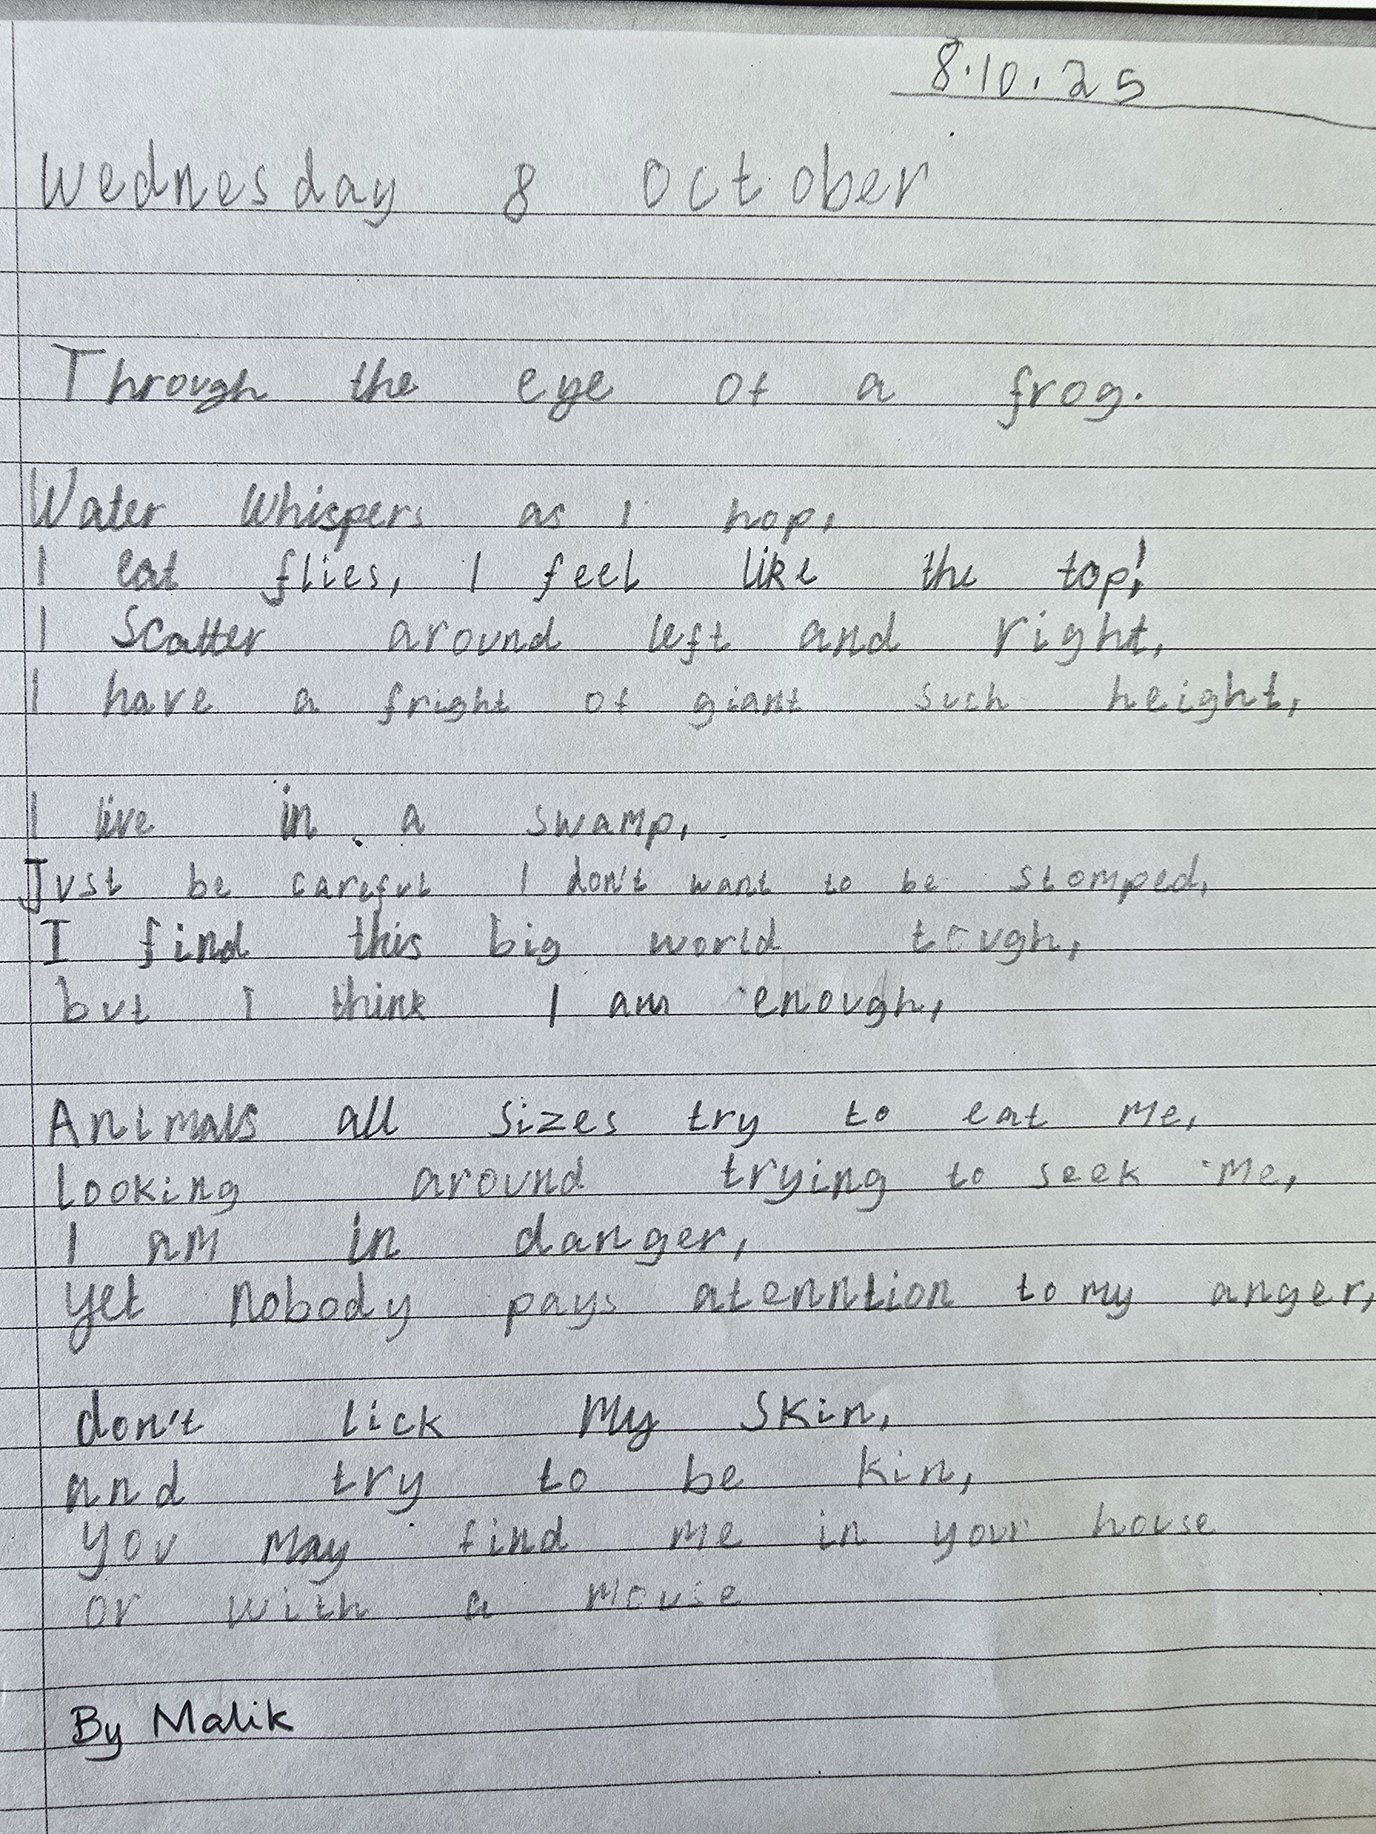 8.10.25
Wednesday 8 October
Through the eye of a frog.
Water Whispers as I hop,
I eat flies, I feel like the top!
I Scatter around left and right,
I have a fright of giant such height,
I live in a swamp,
Just be careful I don't want to be stomped,
I find this big world tough,
but I think I am enough,
Animals all sizes try to eat me,
Looking around trying to seek me,
I am in danger,
yet nobody pays atenntion to my anger,
don't lick My Skin,
and try to be kin,
you may find me in your house
or with a mouse
By Malik